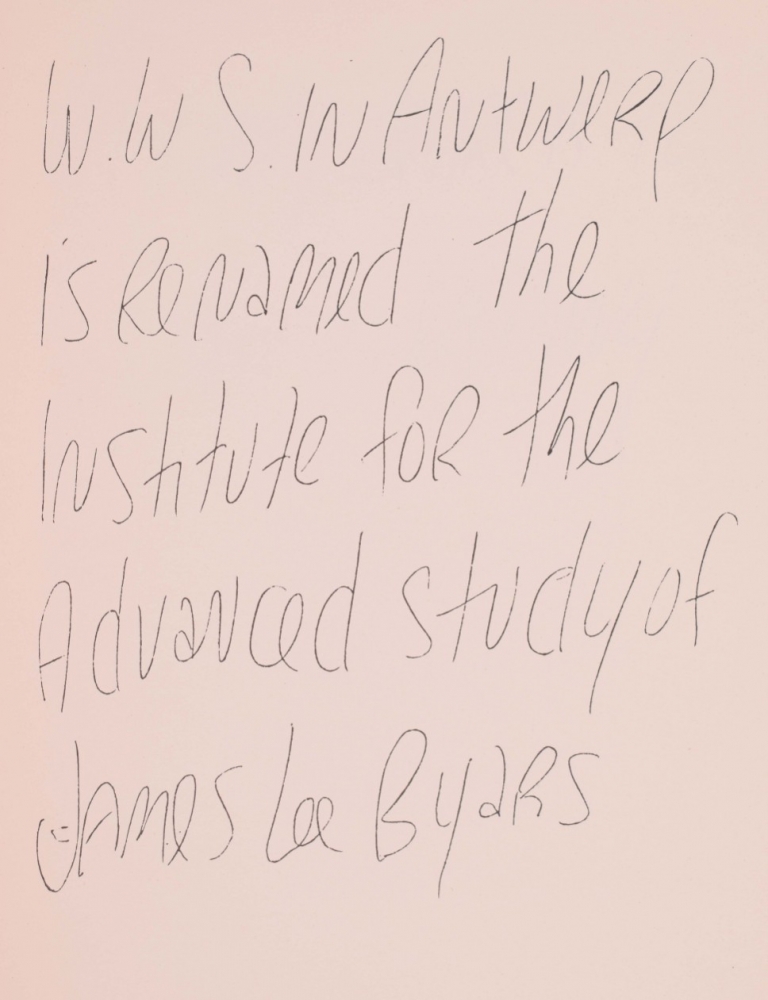 W.W S. IN ANtweRp
is ReNamed the
INStitute foR the
Advanced study of
James Lee ByaRs